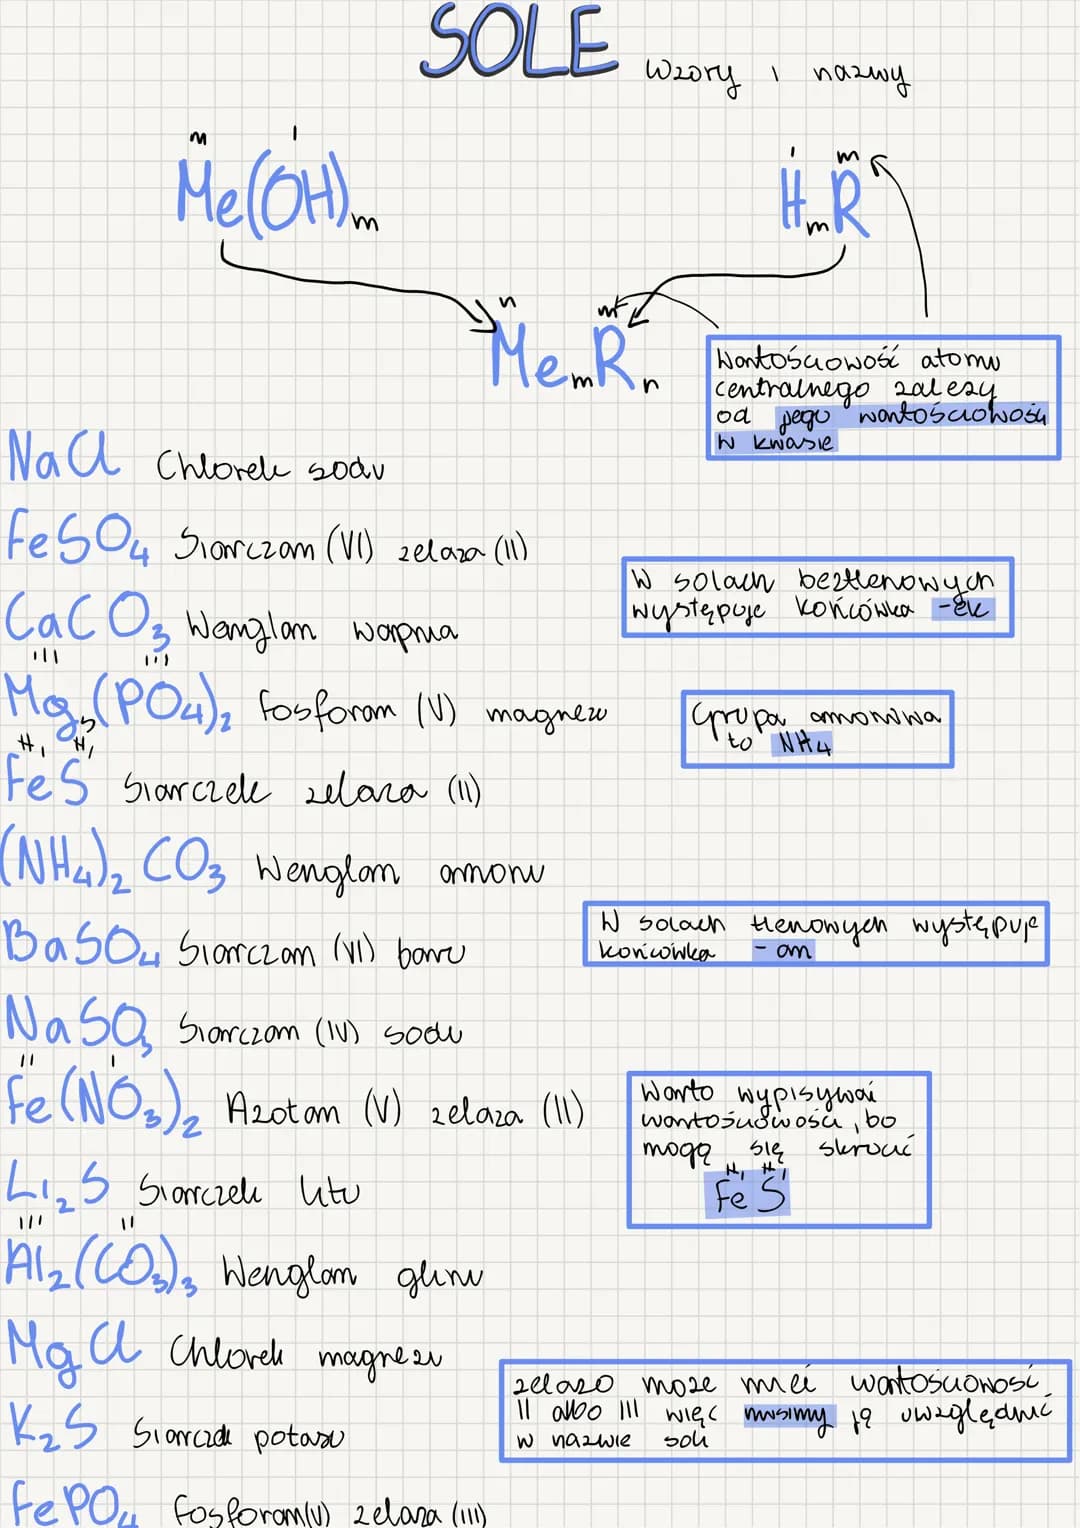 SOLE wzory i nazwy
n I I m
Me(OH)m HmR
n m
MemRn
Wartościowość atomu
centralnego zalezy
od jego wartościowości
w kwasie
NaCl Chlorek sodu
FeSO4 Siarczan (VI) zelaza (II)
W solach beztlenowych
występuje końcówka -ek
CaCO3 Wenglan wapnia
III III
Mg3(PO4)2 fosforan (V) magnezu
Grupa amonowa
to NH4
II I II I
FeS Siarczek zelaza (II)
(NH4)2 CO3 Wenglan amonu
W solach tlenowych występuje
końcówka - an
BaSO4 Siarczan (VI) baru
NaSO3 Siarczan (IV) sodu
II I
Fe(NO3)2 Azotan (V) zelaza (II)
Warto wypisywać
wartościowości, bo
mogą się skrócić
II I II I
Fe S
Li2S Siarczek litu
III II
Al2(CO3)3 Wenglan glinu
MgCl Chlorek magnezu
zelazo moze mieć wartościowość
II albo III więc musimy ją uwzględnić
w nazwie soli
K2S Siarczek potasu
FePO4 fosforan(V) zelaza (III)